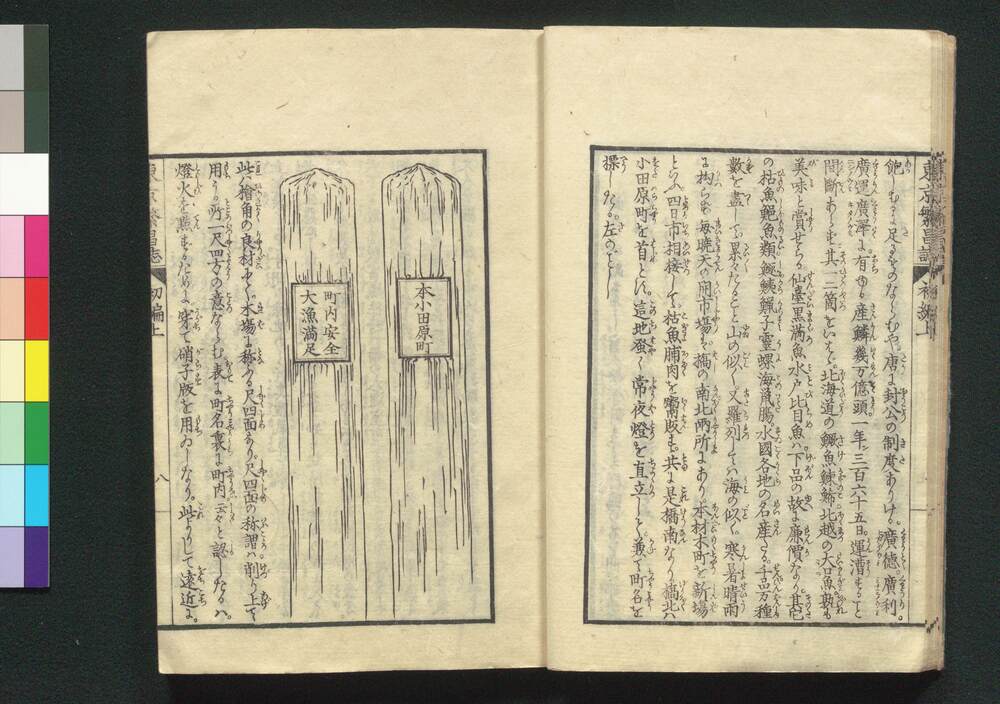 飽しむるに足るものならむや。唐に封公の制度ありける。廣德。廣利。
廣運廣澤に有ゆる産鱗幾万億頭一年三百六十五日。運漕すること
間斷あらず其一二箇をいはゞ。北海道の鱖魚鰊鯑北越の大口魚敷も
美味と賞せらる仙臺黒滿魚水戸比目魚ハ下品の故に廉價なり其它
の枯魚鮑魚類鰹鮧鱲子靈螺海鼠膓水國各地の名産たる。千品万種
數を盡して累々たること山の似く又羅列してハ海の似く。寒暑晴雨
に拘らず毎曉天の開市塲も橋の南北兩所にあり。本材木町を新塲
といふ四日市相接して枯魚脯肉を鬻販す。共に是橋南なり橋北ハ
小田原町を首とし。這地蚤く常夜燈を直立しを兼て町名を
標したる。左のごとし
本小田原町
町内安全
大漁滿足
此ハ檜角の良材にて。木塲に称ふる尺四面なり。尺四面の称謂ハ削り上て
用うる所一尺四方の意ならむ。表に町名裏に町内云々と認したるハ。
燈火を點ずるために穿て硝子版を用ゐしなり。此よりして遠近に。
東京繁昌誌
初編上
八
東京繁昌誌
初編上